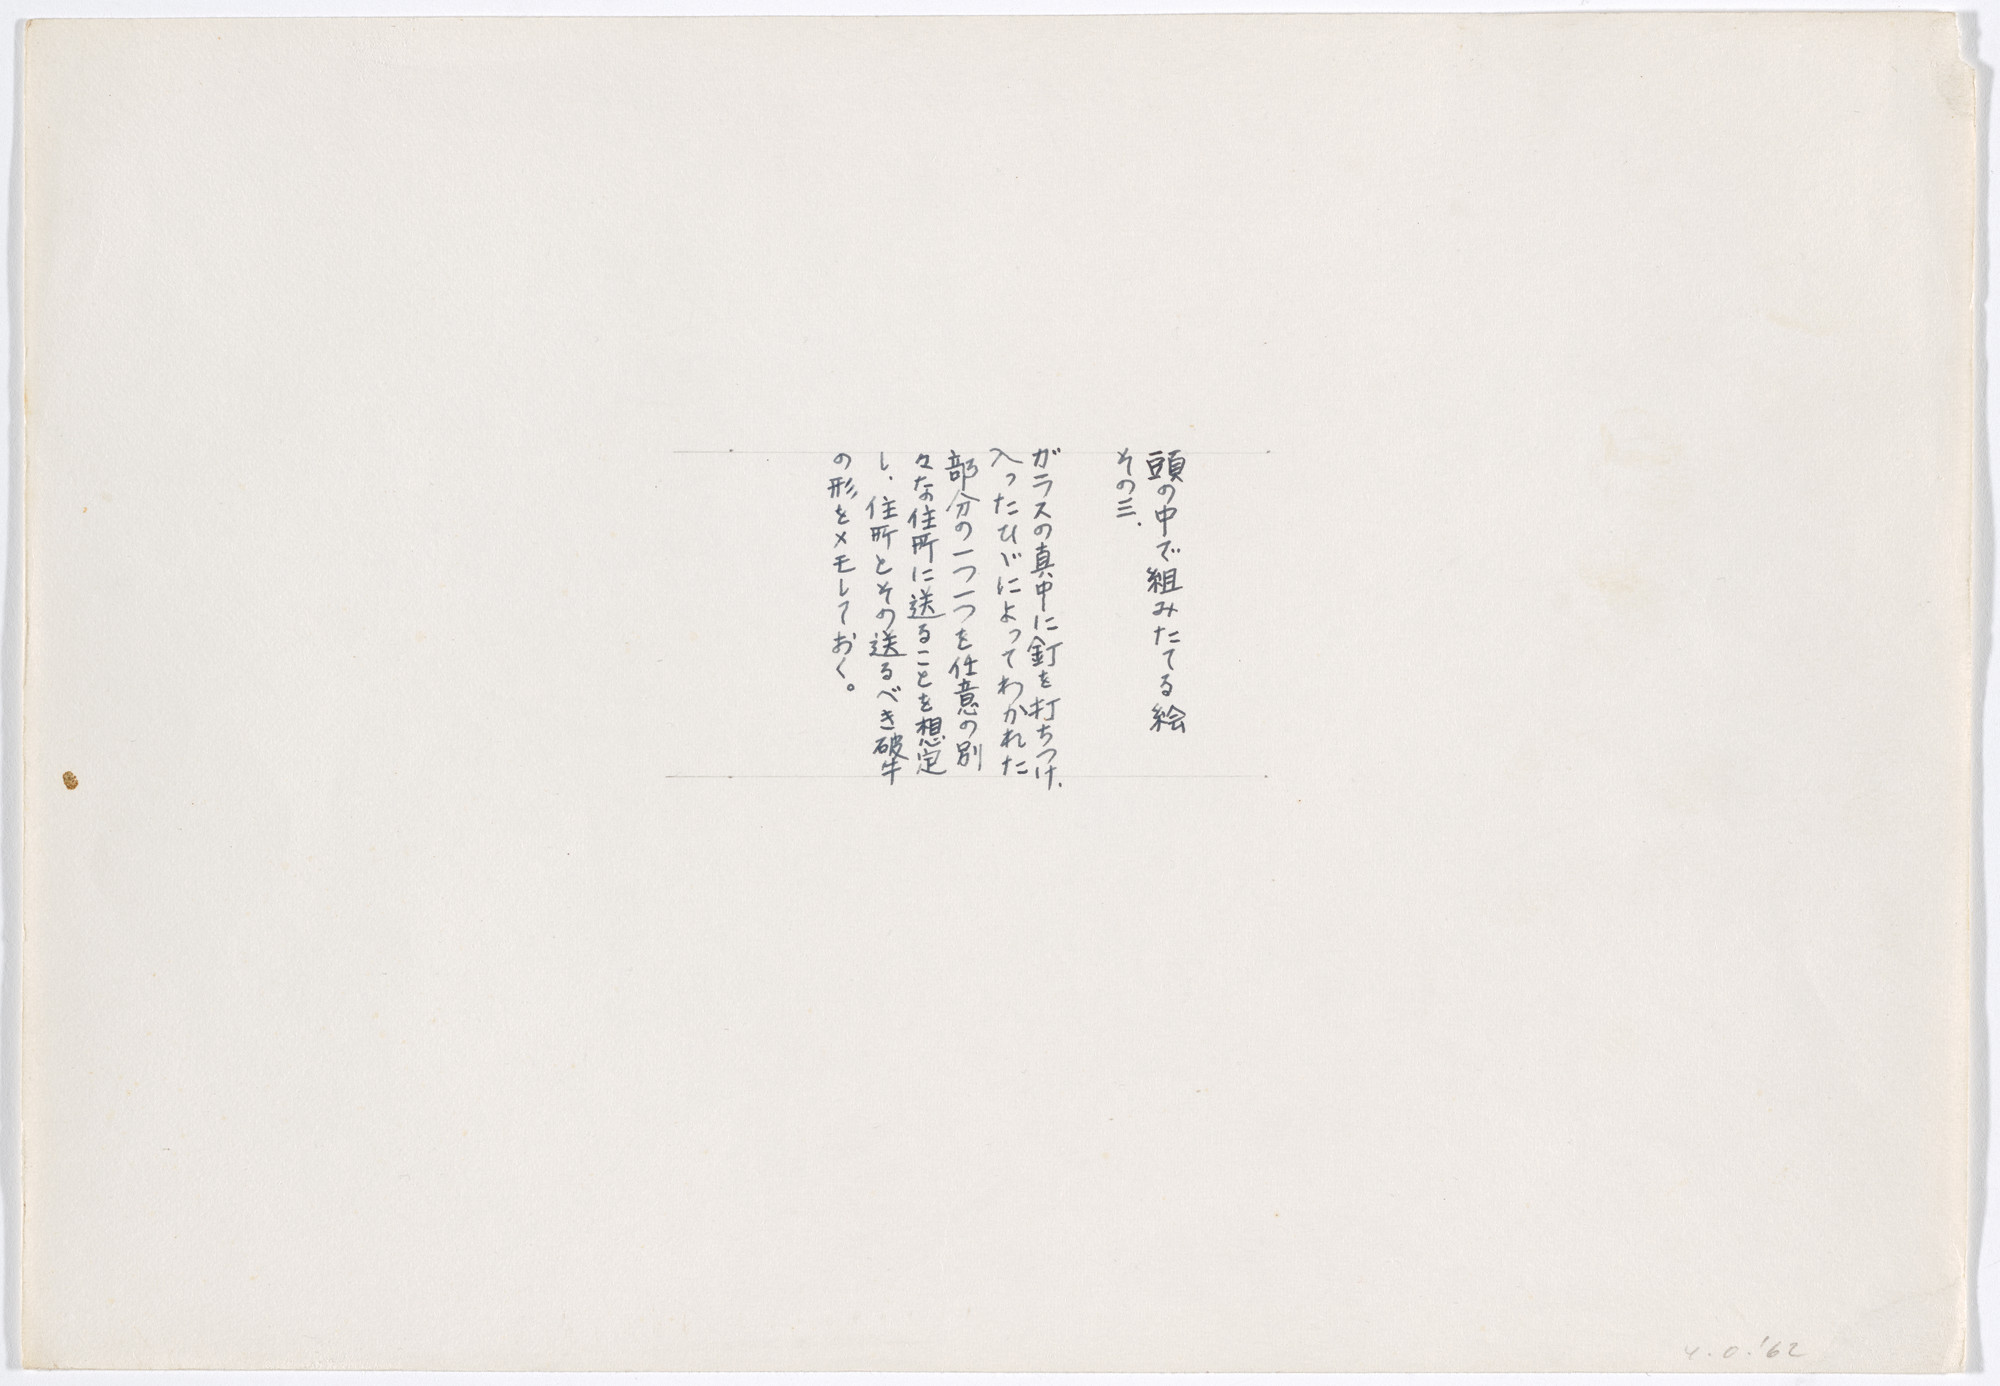 頭の中で組みたてる絵
その三.
ガラスの真中に釘を打ちつけ、
入ったひゞによってわかれた
部分の一つ一つを任意の別
々な住所に送ることを想定
し、住所とその送るべき破片
の形をメモしておく。
y.o.'62